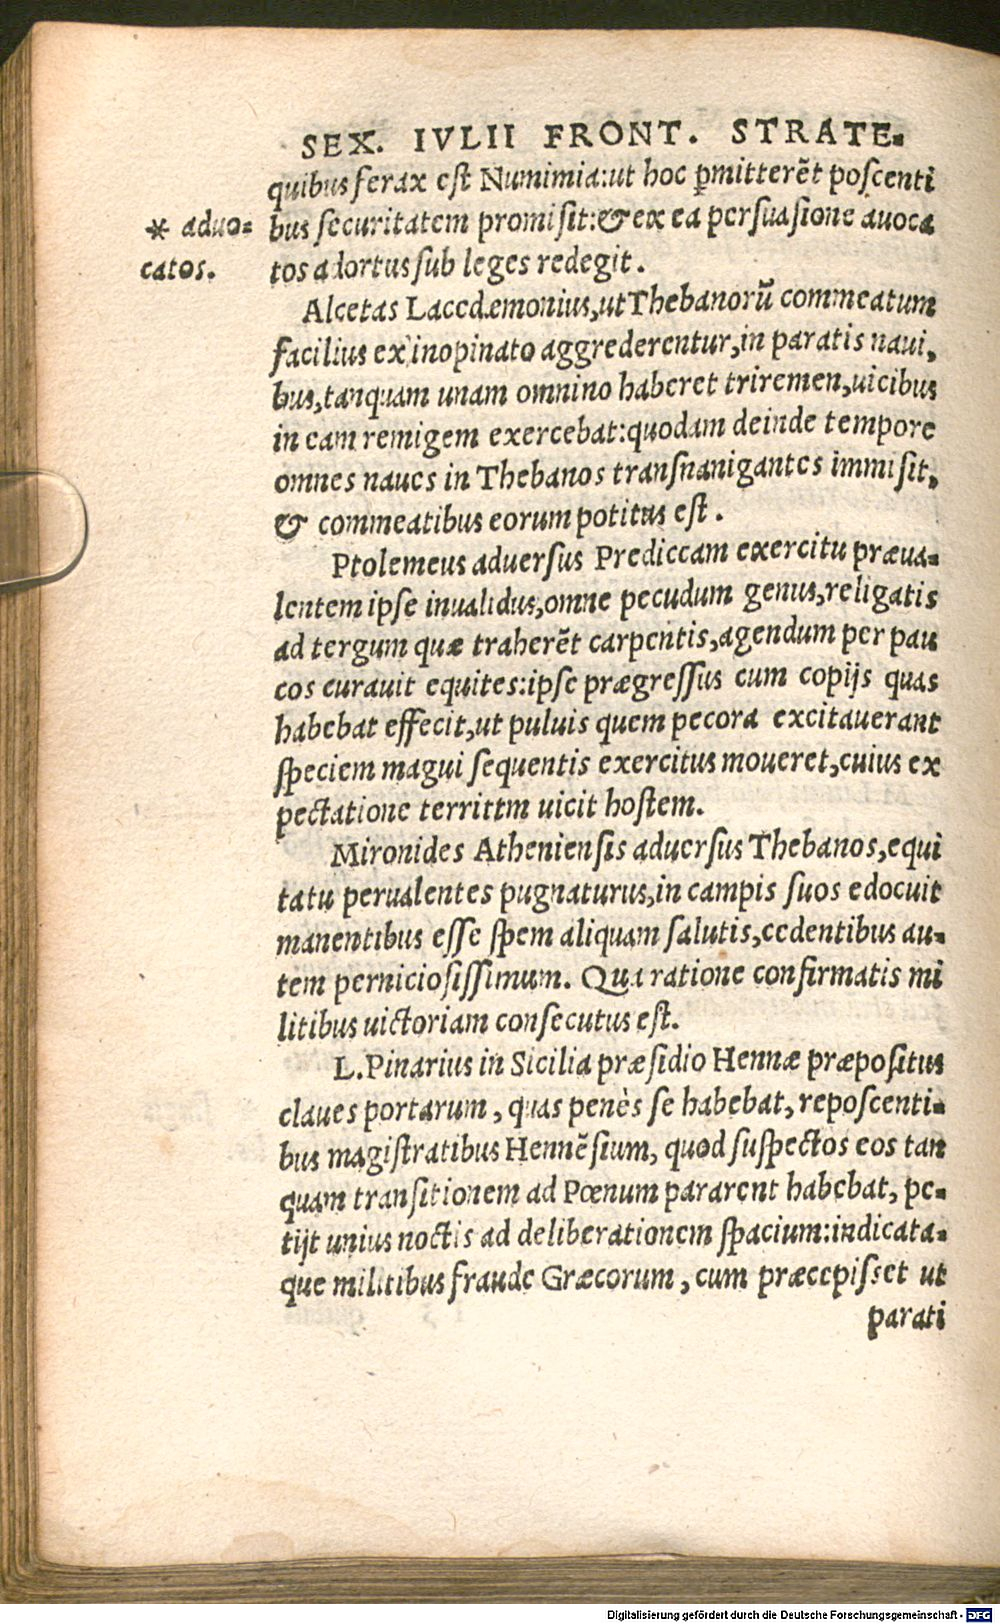 SEX. IVLII FRONT. STRATE-
quibus ferax est Numimia:ut hoc ꝑmitterẽt poscenti
bus securitatem promisit:& ex ea persuasione auoca
* aduo-
catos.
tos adortus sub leges redegit.
Alcetas Lacedæmonius,ut Thebanorũ commeatum
facilius ex inopinato aggrederentur,in paratis naui,
bus,tanquam unam omnino haberet triremen,uicibus
in eam remigem exercebat:quodam deinde tempore
omnes naues in Thebanos transnanigantes immisit,
& commeatibus eorum potitus est.
Ptolemeus aduersus Prediccam exercitu præua-
lentem ipse inualidus,omne pecudum genus,religatis
ad tergum quæ traherẽt carpentis,agendum per pau
cos curauit equites:ipse prægressus cum copijs quas
habebat effecit,ut puluis quem pecora excitauerant
speciem magui sequentis exercitus moueret,cuius ex
pectatione territtm uicit hostem.
Mironides Atheniensis aduersus Thebanos,equi
tatu perualentes pugnaturus,in campis suos edocuit
manentibus esse spem aliquam salutis,cedentibus au-
tem perniciosissimum. Qua ratione confirmatis mi
litibus uictoriam consecutus est.
L.Pinarius in Sicilia præsidio Hennæ præpositus
claues portarum, quas penès se habebat, reposcenti-
bus magistratibus Hennẽsium, quod suspectos eos tan
quam transitionem ad Pœnum pararent habebat, pe-
tijt unius noctis ad deliberationem spacium:indicata-
que militibus fraude Græcorum, cum præcepisset ut
parati
Digitalisierung gefördert durch die Deutsche Forschungsgemeinschaft - DFG